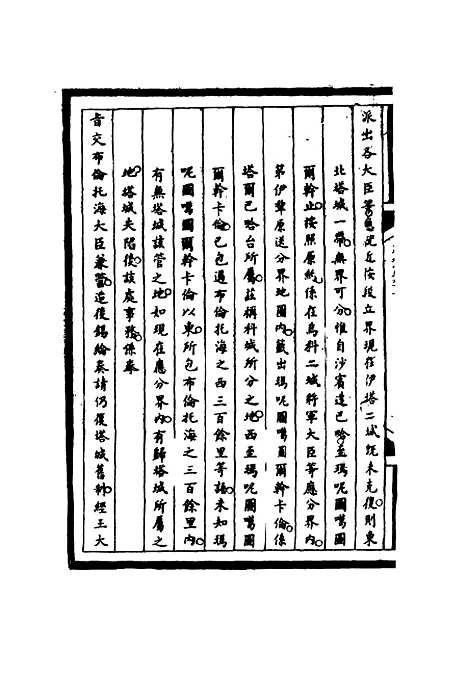 派出各大臣等。悤從丘按段立界現在伊塔二城既未克復則東
北塔城一帶。無界可分。惟自沙賓達巴哈。至瑪呢圖噶圖
爾幹止。按照原然。係在烏科二城將軍大臣等應分界內。
第伊犂原送分界地圖內。籤出瑪呢圖噶圖爾幹卡倫。係
塔爾巴哈台所屬。茲稱科城所分之地。西至瑪呢圖噶圖
爾幹卡倫。已包過布倫托海之西三百餘里等語。未知瑪
呢圖噶圖爾幹卡倫以東。所包布倫托海之三百餘里內。
有無塔城該管之地。如現在應分界內。有歸塔城所屬之
地。塔城失陷後。該處事務。係奉
旨交布倫托海大臣兼管。造復錫綸奏請仍復塔城舊制。經王大